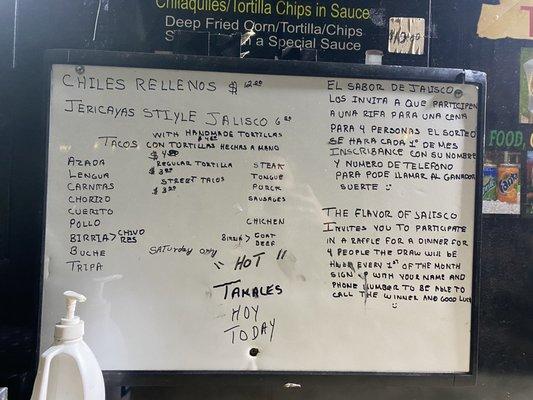 Chilaquiles/Tortilla Chips in Sauce
Deep Fried Corn/Tortilla/Chips
in a Special Sauce
CHILES RELLENOS $ 12.00
JERICAYAS STIYLE JALISCO
TACOS
WITH HANDMADE TORTILLAS
CON TORTILLAS HECHAS A MANO
REGULAR TORTILLA
STREET TACOS
AZADA
LENGUA
CARNITAS
CHORIZO
CUERITO
POLLO
BIRRIA > CHIVO
RES
BUCHE
TRIPA
SATURDAY ONLY
STEAK
TONGUE
PORCK
SAUSAGES
CHICKEN
BIRRIA > GOAT
BEEF
"HOT"
TAMALES
HOY
TODAY
EL SABOR DE JALISCO
LOS INVITA A QUE PARTICIPEN
A UNA RIFA PARA UNA CENA
PARA 4 PERSONAS EL SORTEO
SE HARA CADA 1° DE MES
INSCRIBANCE CON SU NOMBRE
Y NUMERO DE TELEFONO
PARA PODE LLAMAR AL GANADOR
SUERTE
THE FLAVOR OF JALISCO
INVITES YOU TO PARTICIPATE
IN A RAFFLE FOR A DINNER FOR
4 PEOPLE THE DRAW WILL BE
EVERY 1ST OF THE MONTH
SIGN UP WITH YOUR NAME AND
PHONE NUMBER TO BE ABLE TO
CALL THE WINNER AND GOOD LUCK
FOOD,
Fanta